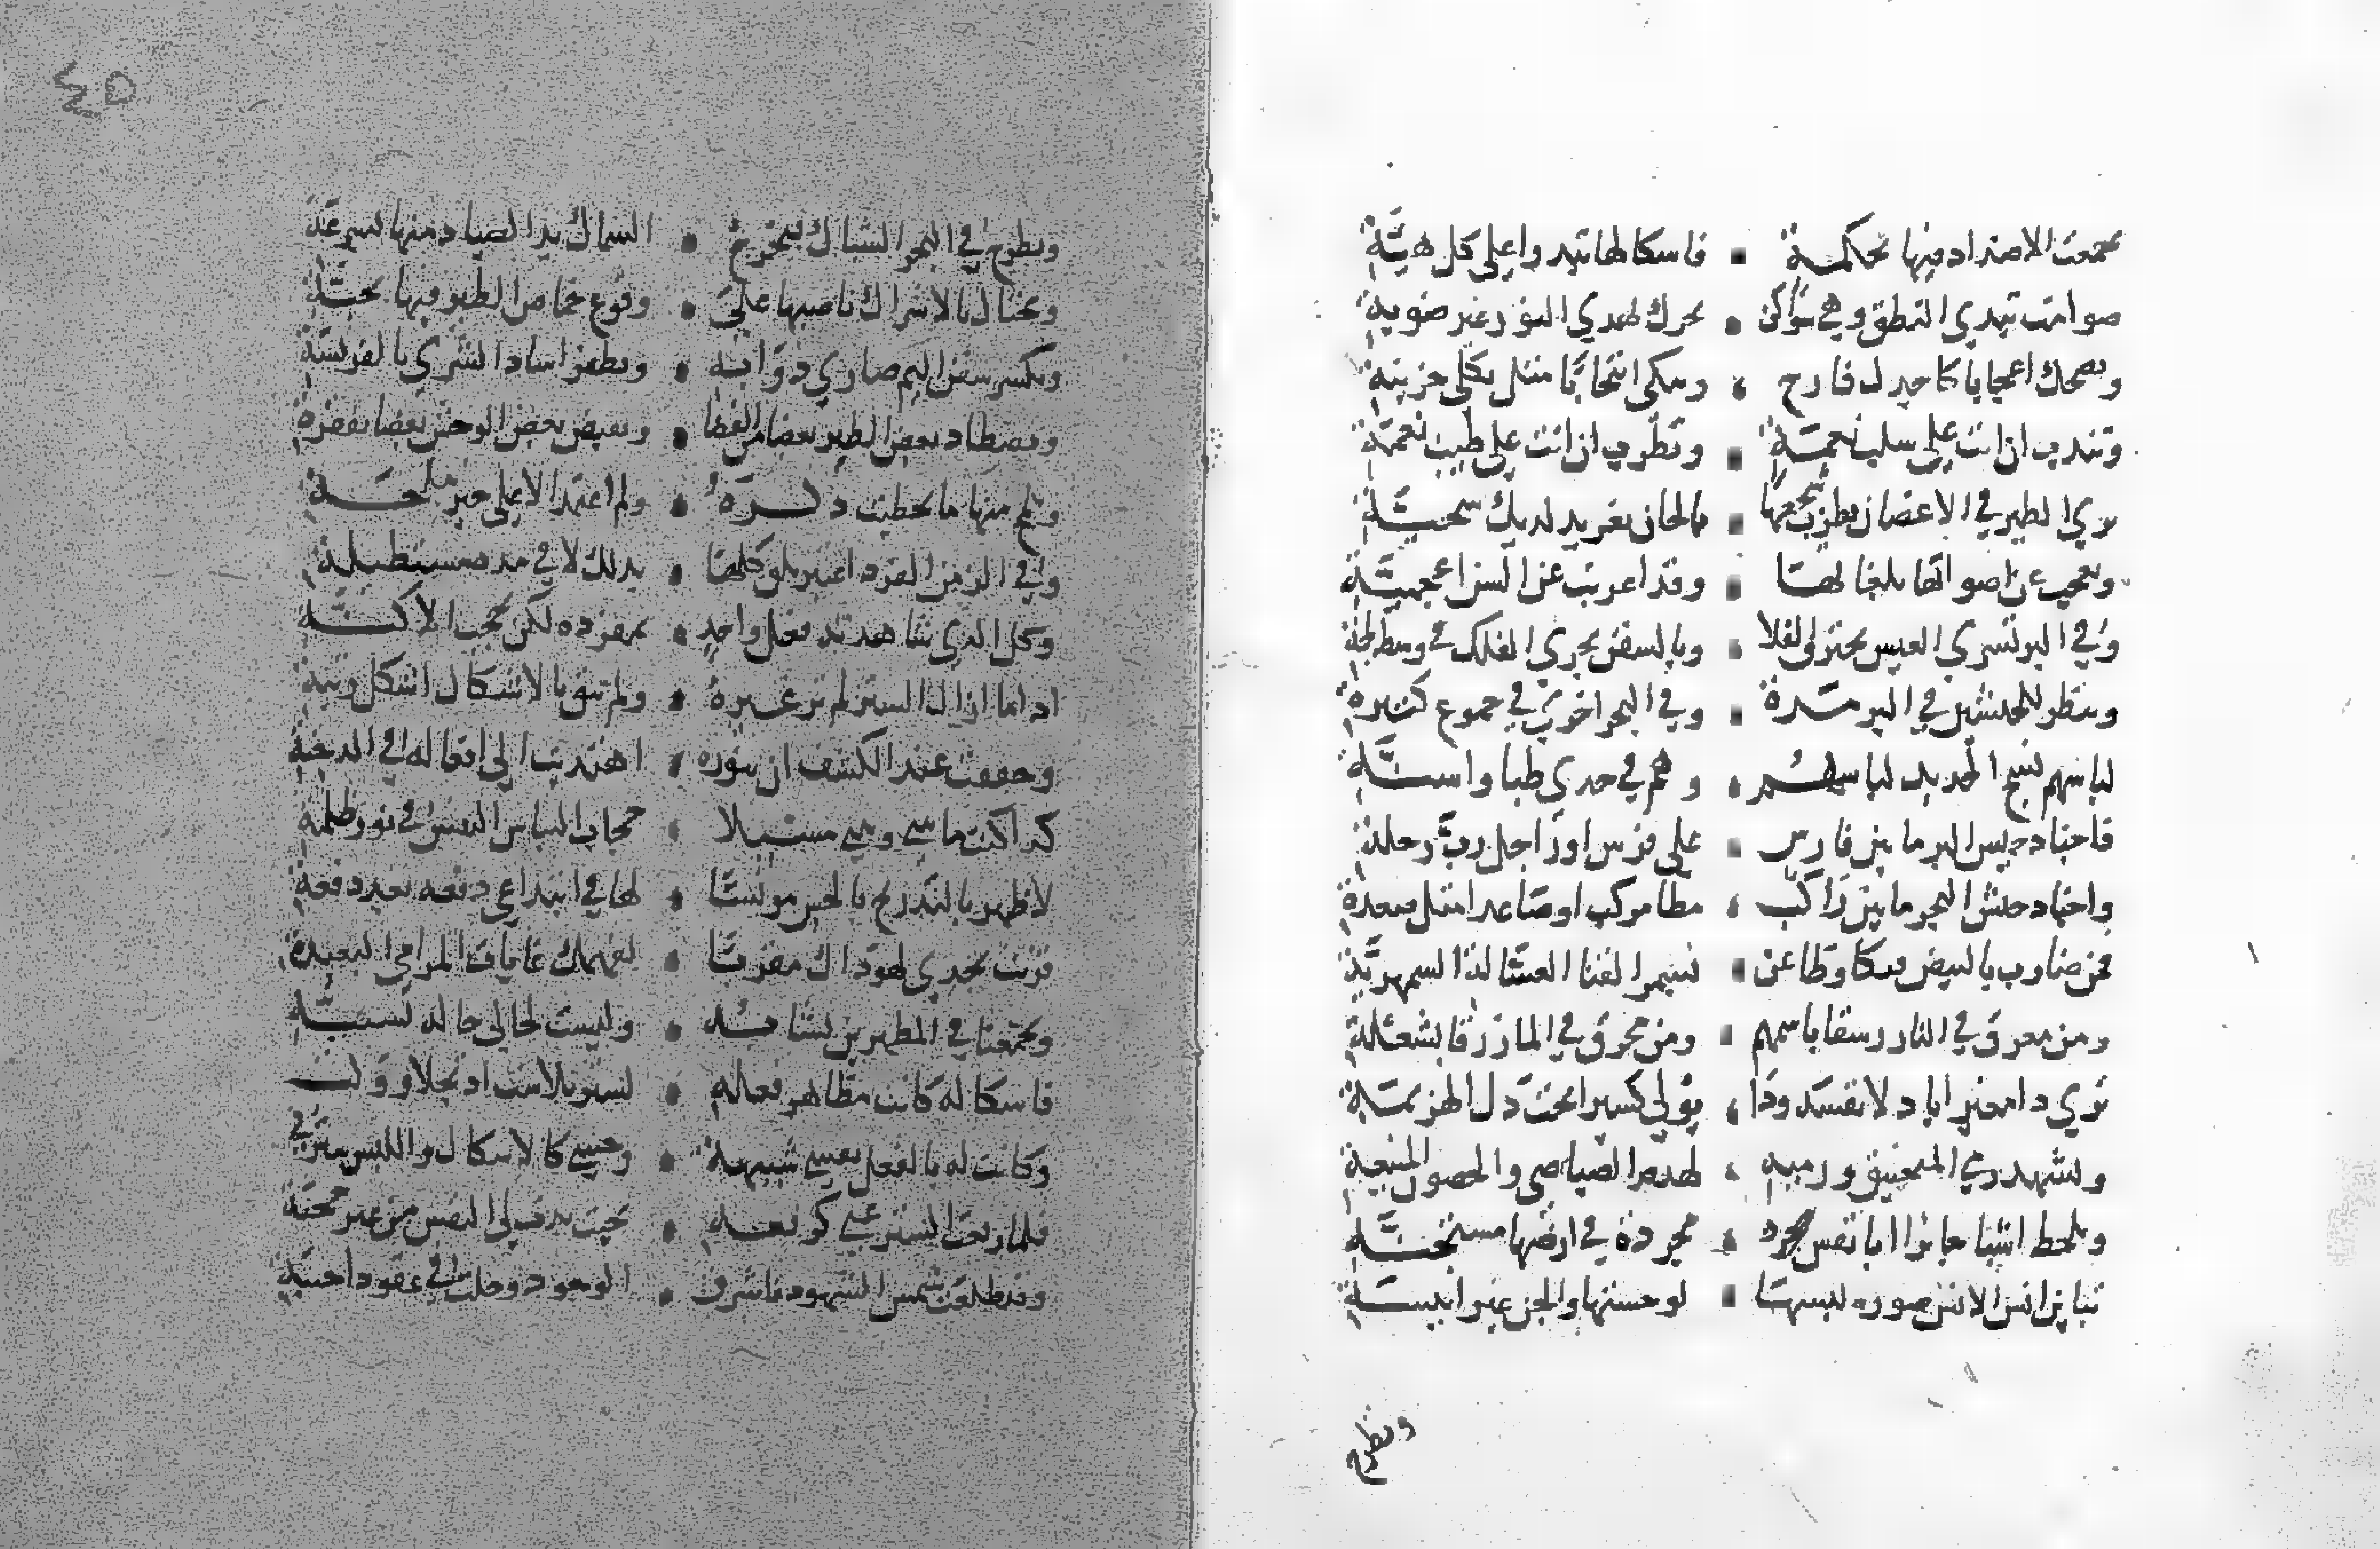 تجمعت الاضداد فيها بحكمة فاشكالها تبدوا علي كل هيّة
صوامت تبدي النطق وهي سواكن تحرك تهدي النور غير ضوية
وتضحك اعجابا كاجدل فارح وتبكي انتحابا مثل ثكلي حزينة
وتندب ان انت علي سلب نعمة وتطرب ان انت علي طيب نغمة
تري الطير في الاغصان يطرب سجعها بالحان تغريد لديك شجيّة
وتعجب عن اصواتها بلغاتها وقد اعربت عن السن اعجميّة
وفي البر تسري العيس تخترق الفلا وبالسفن تجري الفلك في وسط لجة
وتنظر للجيشين في البر مرة وفي البحر اخري في جموع كثيرة
لباسهم نسج الحديد لباسهم وهم في حمي ظبا واسنّة
فاجناد جيش البر ما بين فارس علي فرس او راجل ربّ رجلة
واجناد جيش البحر ما بين راكب مطا مركب او صاعدا مثل صعدة
فمن ضارب بالبيض فتكا وطاعن بسمر القنا العسّالة السمهريّة
ومن مغرق في النار رشقا باسهم ومن محرق في الما زرقا بشعلة
تري ذا مغيرا باذلا نفسه وذا يولي كسيرا تحت ذل الهزيمة
وتشهد رمي المنجنيق ورميه لهدم الصياصي والحصون المنيعة
وتلحظ اشباحا تراءا بانفس مجردة في ارضها مستجنّة
تباين انس الانس صورة لبسها لوحشتها والجن غير انيسة
وتطرح
٤٥
وتطرح في البحر الشباك فتخرج السماك يد الصياد منها لسرعة
وتحتال بالاشراك ناصبها علي وقوع خماص الطير فيها بحبّة
وتكسر سفن اليم ضاري دوابه وتظفر اساد الشري بالفريسة
وتصطاد بعض الطير بعضا من الفضا وتقنص بعض الوحش بعضا بقفرة
وتلمح منها ما تخطيت ذكره ولم اعتمد الا علي خير ملحة
وفي الزمن الفرد اعتبر تلق كلما بدا لك لا في مدة مستطيلة
وكل الذي شاهدته فعل واحد بمفرده لكن بحجب الاكنّة
اذا ما ازال الستر لم تر غيره ولم تبق بالاشكال اشكال ريبة
وحققت عند الكشف ان بنوره اهتديت الي افعاله في الدجنة
كذا كنت ما بيني وبيني مسبلا حجاب التباس النفس في نور ظلمة
لاظهر بالتدريج بالحس مونسا لها في ابتداعي دفعة بعد دفعة
قرنت بجدي لهو ذاك مقربا لفهمك غايات المرامي البعيدة
وتجمعنا في المظهرين تشابه وليست لحالي حاله بشبيهة
فاشكاله كانت مظاهر فعله بستر تلاشت اذ تجلا وولت
وكانت له بالفعل نفسي شبيهة وحسي كالاشكال واللبس سترتي
فلما رفعت الستر عني كرفعه بحيث بدت لي النفس من غير حجة
وقد طلعت شمس الشهود فاشرق الوجود وحلت بي عقود اخية